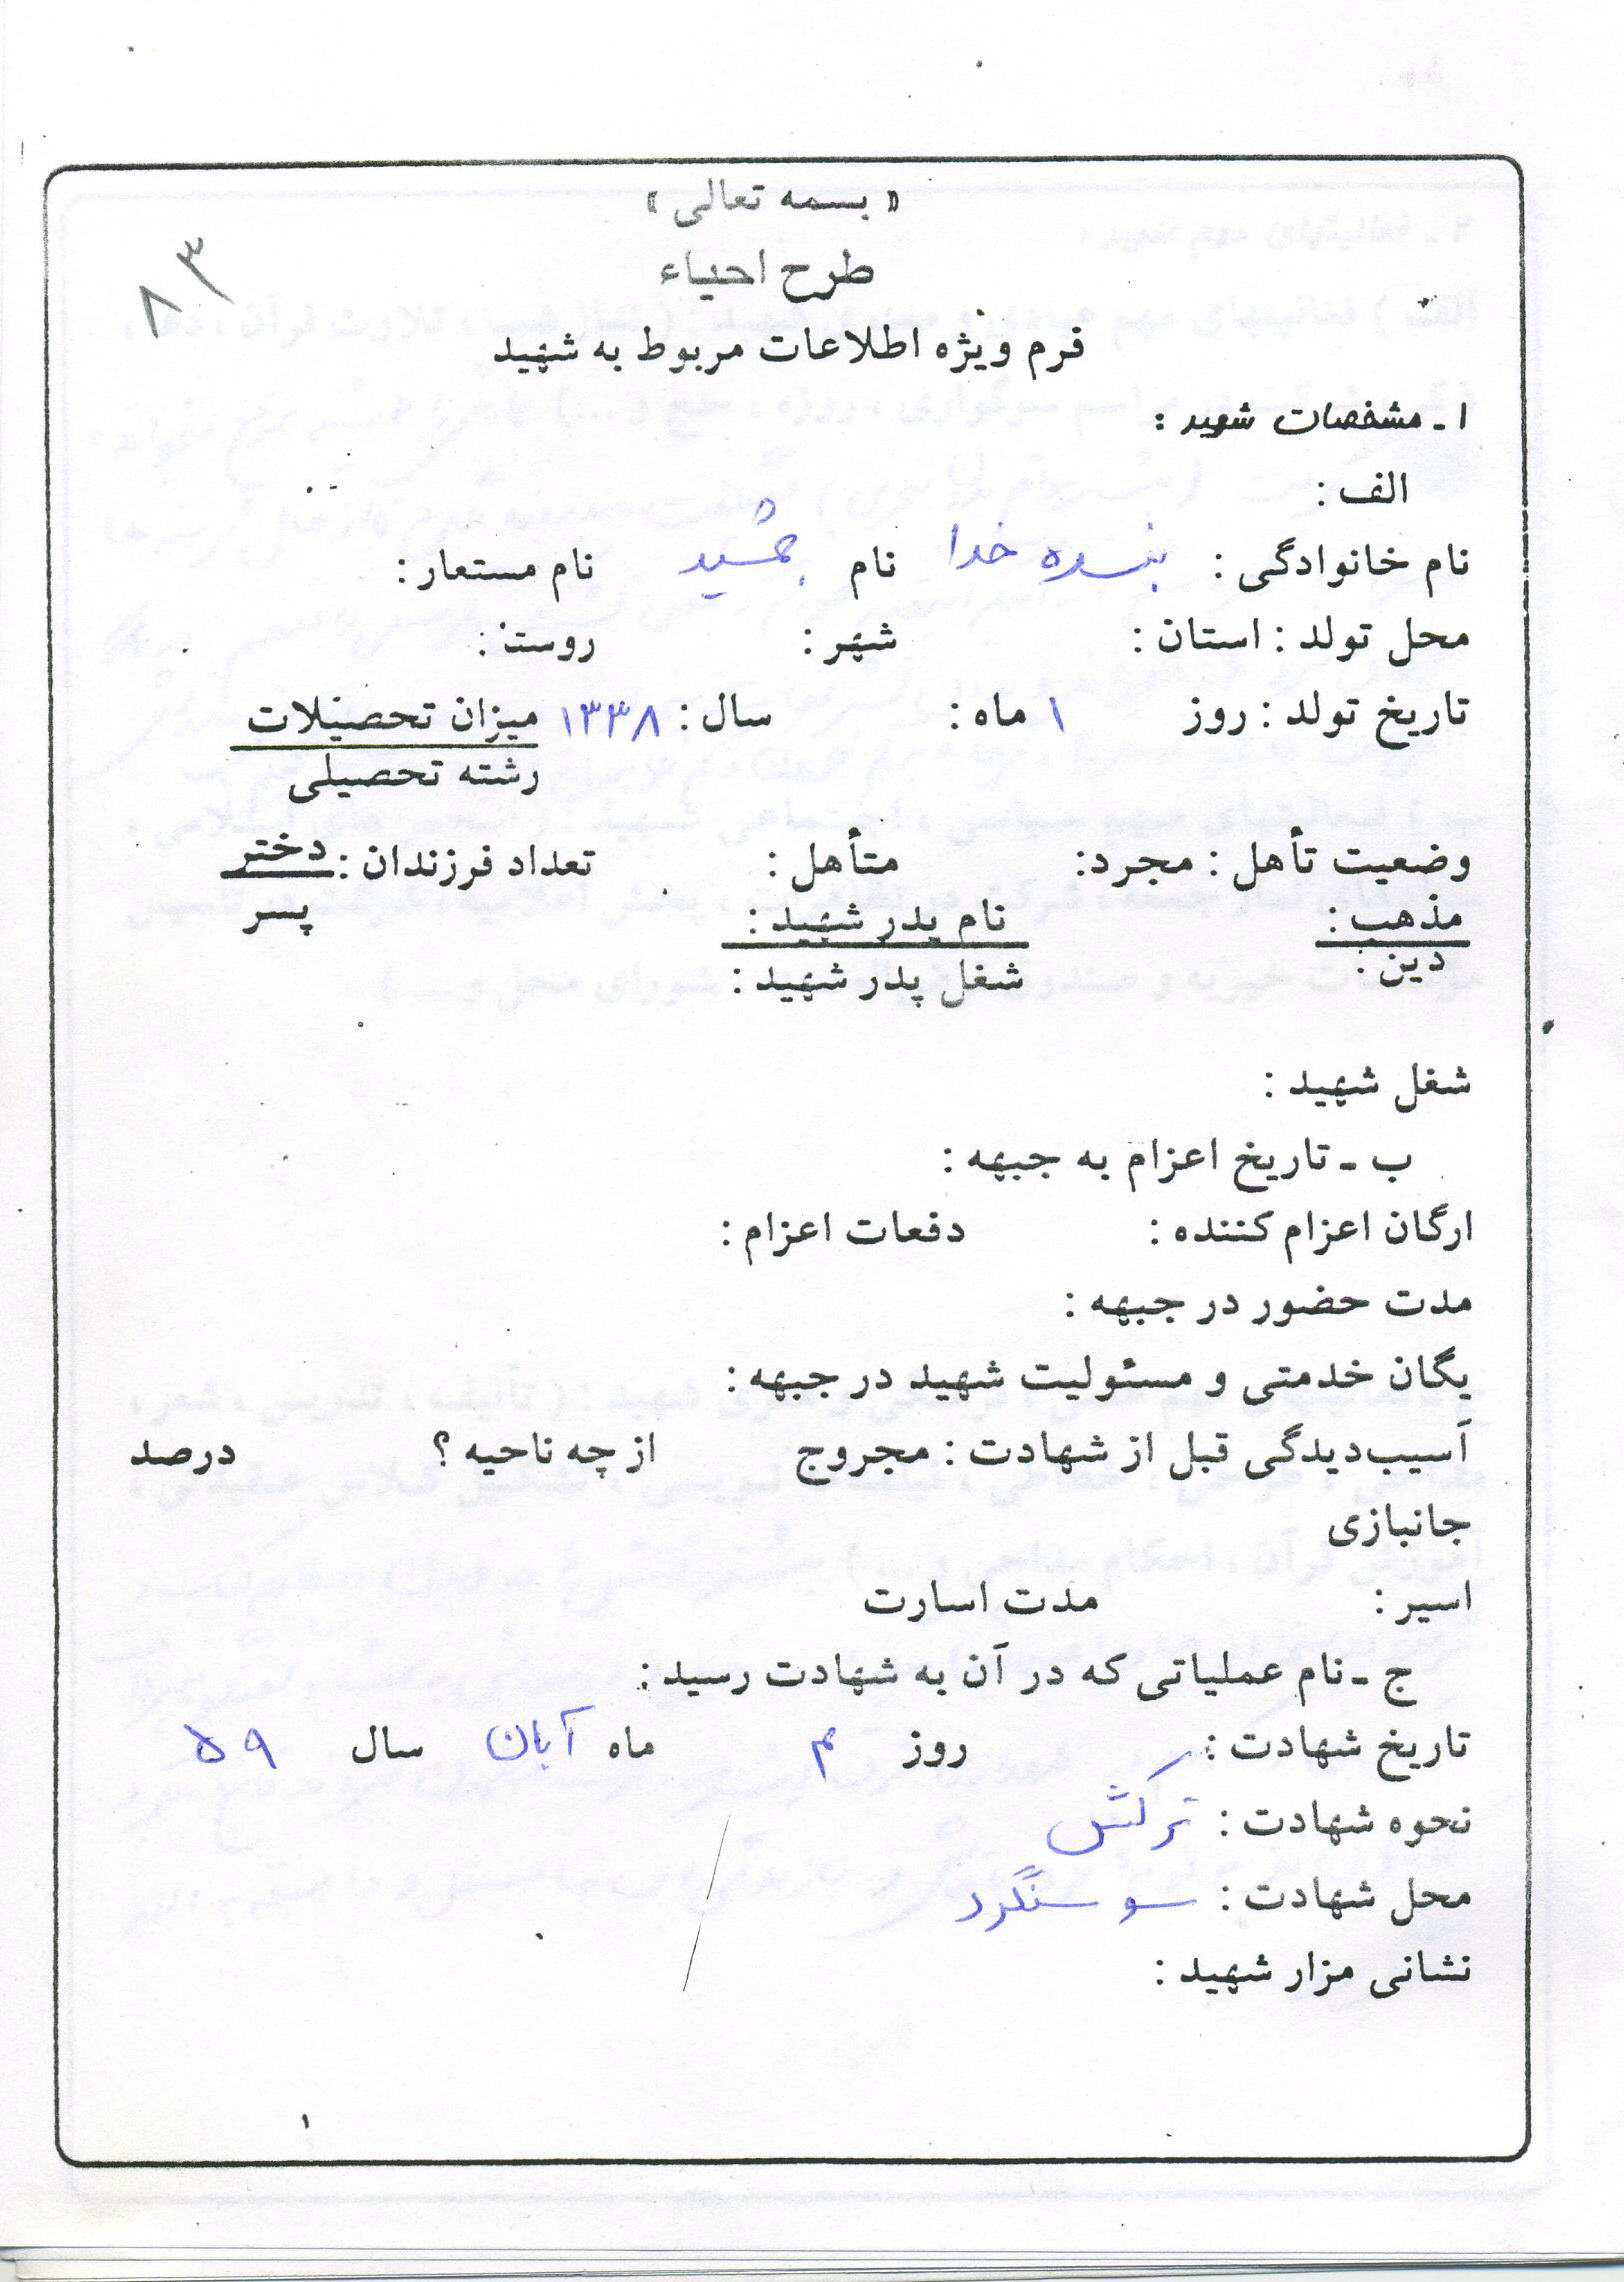 « بسمه تعالی »
طرح احیاء
۸۳
فرم ویژه اطلاعات مربوط به شهید
۱ ـ مشخصات شهید :
الف :
نام خانوادگی : بنده خدا نام جمشید نام مستعار :
محل تولد : استان : شهر : روستا :
تاریخ تولد : روز ۱ ماه : سال : ۱۳۳۸ میزان تحصیلات
رشته تحصیلی
وضعیت تأهل : مجرد: متأهل : تعداد فرزندان : دختر
مذهب : نام پدر شهید : پسر
دین : شغل پدر شهید :
شغل شهید :
ب ـ تاریخ اعزام به جبهه :
ارگان اعزام کننده : دفعات اعزام :
مدت حضور در جبهه :
یگان خدمتی و مسئولیت شهید در جبهه :
آسیب‌دیدگی قبل از شهادت : مجروح از چه ناحیه ؟ درصد
جانبازی
اسیر : مدت اسارت
ج ـ نام عملیاتی که در آن به شهادت رسید :
تاریخ شهادت : روز ماه آبان سال ۵۹
نحوه شهادت : ترکش
محل شهادت : سوسنگرد
نشانی مزار شهید :
۱